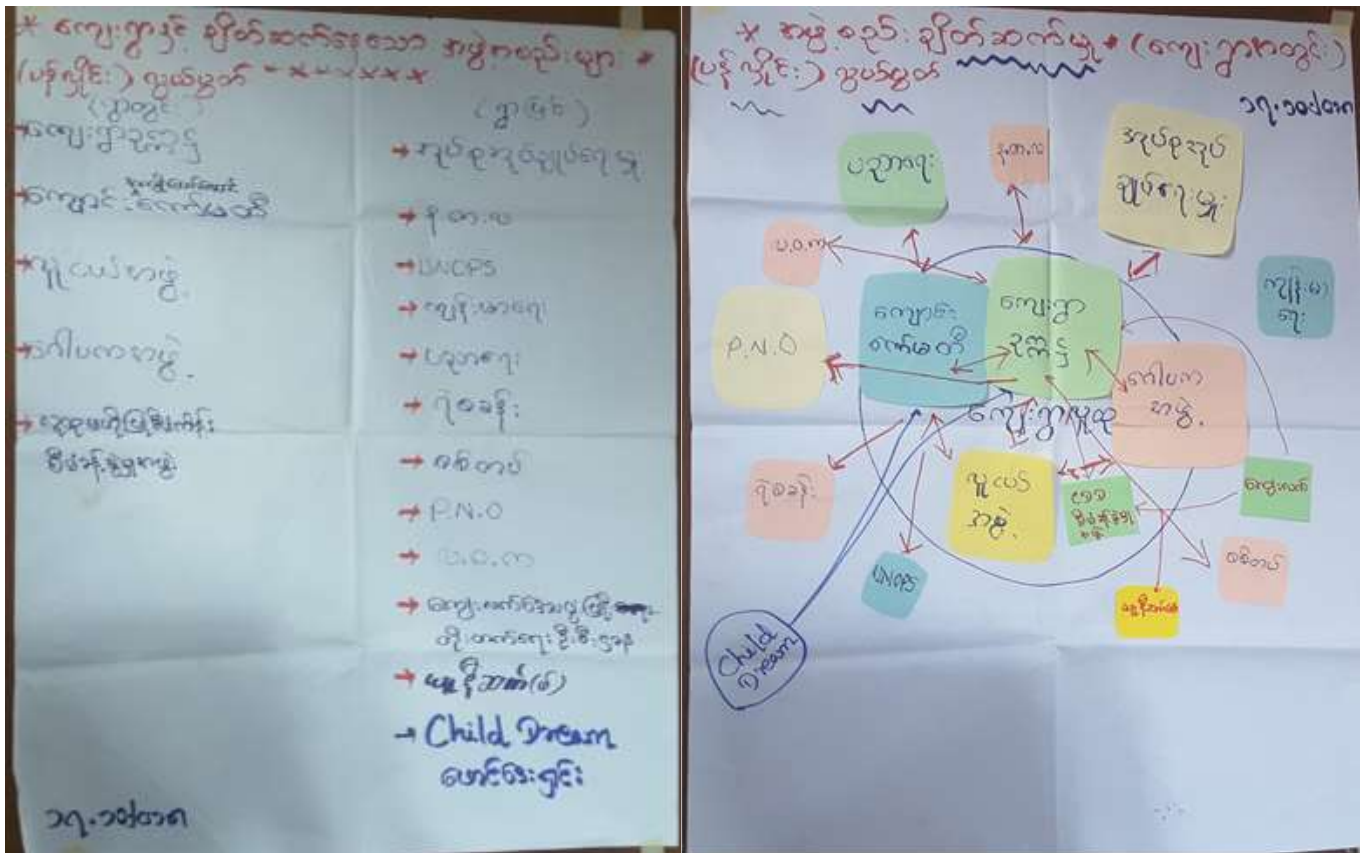 * ကျေးရွာနှင့် ချိတ်ဆက်နေသော အဖွဲ့အစည်းများ *
(ပန်လှိုင်း) လွယ်မွတ်
(ရွာတွင်း)
→ ကျေးရွာဥက္ကဋ္ဌ
→ ကျောင်း ကော်မတီ
→ လူငယ်အဖွဲ့
→ ဂေါပကအဖွဲ့
စီမံခန့်ခွဲမှုအဖွဲ့
(ရွာပြင်)
→ အုပ်စုအုပ်ချုပ်ရေးမှူး
→ န.တ.လ
→ UNOPS
→ ကျန်းမာရေး
→ ပညာရေး
→ ရဲစခန်း
→ စစ်တပ်
→ P.N.O
→ ပ.ဝ.က
→ ကျေးလက်ဒေသဖွံ့ဖြိုး
တိုးတက်ရေးဦးစီးဌာန
→ Child Dream
ဖောင်ဒေးရှင်း
* အဖွဲ့အစည်းချိတ်ဆက်မှု * (ကျေးရွာအတွင်း)
(ပန်လှိုင်း) လွယ်မွတ်
ပညာရေး
န.တ.လ
အုပ်စုအုပ်
ချုပ်ရေးမှူး
ပ.ဝ.က
ကျန်းမာ
ရေး
ကျောင်း
ကော်မတီ
ကျေးရွာ
ဥက္ကဋ္ဌ
P.N.O
ဂေါပက
အဖွဲ့
ကျေးရွာလူထု
ရဲစခန်း
လူငယ်
အဖွဲ့
စီမံခန့်ခွဲမှု
ကျေးလက်
UNOPS
စစ်တပ်
Child
Dream